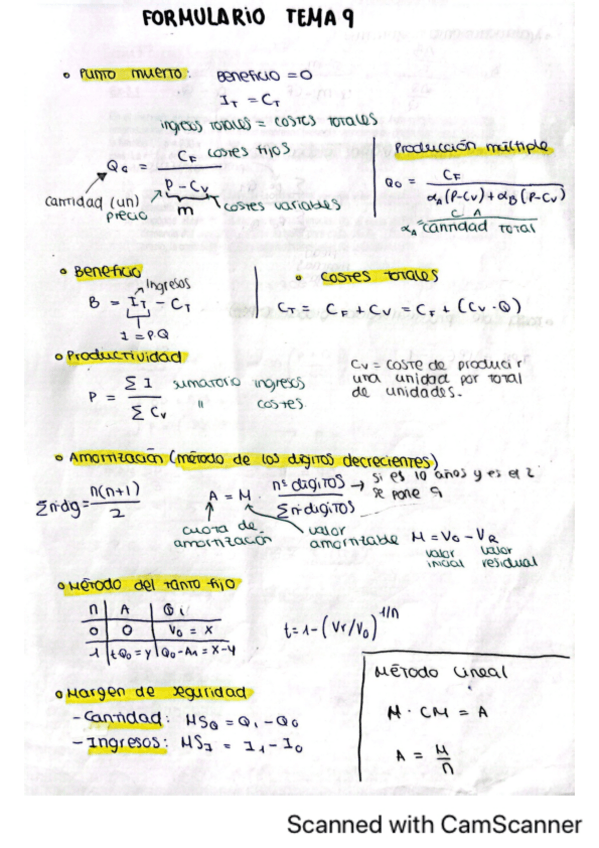 FORMULARIO TEMA 9
• Punto muerto: Beneficio = 0
I_T = C_T
ingresos totales = costes totales
Q_0 = C_F / (P - C_V) costes fijos
cantidad (un) precio m costes variables
Producción múltiple
Q_0 = C_F / (α_A (P-C_V) + α_B (P-C_V))
α_A = cantidad total
• Beneficio
ingresos
B = I_T - C_T
I = P.Q
• Costes totales
C_T = C_F + C_V = C_F + (C_V · Q)
• Productividad
P = Σ I / Σ C_V sumatorio ingresos
" costes
C_V = coste de producir
una unidad por total
de unidades.
• Amortización (método de los dígitos decrecientes)
Σn·dg = n(n+1) / 2
A = M · nº dígitos / Σn·dígitos → si es 10 años y es el 2
se pone 9
cuota de amortización
valor amortizable
M = V_0 - V_R
valor inicial valor residual
• Método del tanto fijo
n | A | Q_i
0 | 0 | V_0 = x
1 | t Q_0 = y | Q_0 - A_1 = x - y
t = 1 - (Vr/V_0)^1/n
• Margen de seguridad
- Cantidad: MS_Q = Q_1 - Q_0
- Ingresos: MS_I = I_1 - I_0
Método Lineal
M · CM = A
A = M / n
Scanned with CamScanner